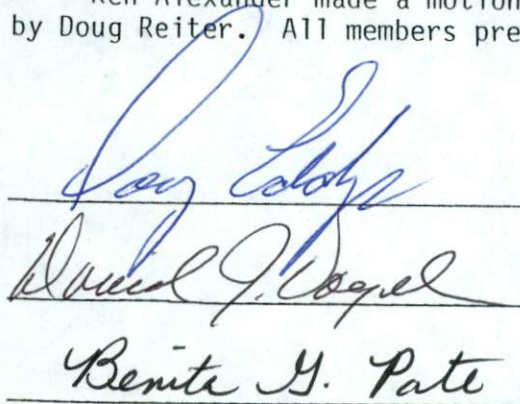 Ken Alexander made a motion
by Doug Reiter. All members pre
David J.
Benita G. Pate